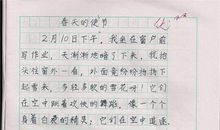 春天的使节
2月10日下午，我坐在窗户前
写作业，天渐渐地暗了下来，我抬
头往窗外一看，外面竟纷纷扬扬下
起雪来，多轻多软的雪花呀！它们
在空中跳着欢快的舞蹈，像一个个
身着白裙的精灵；它们在空中追逐